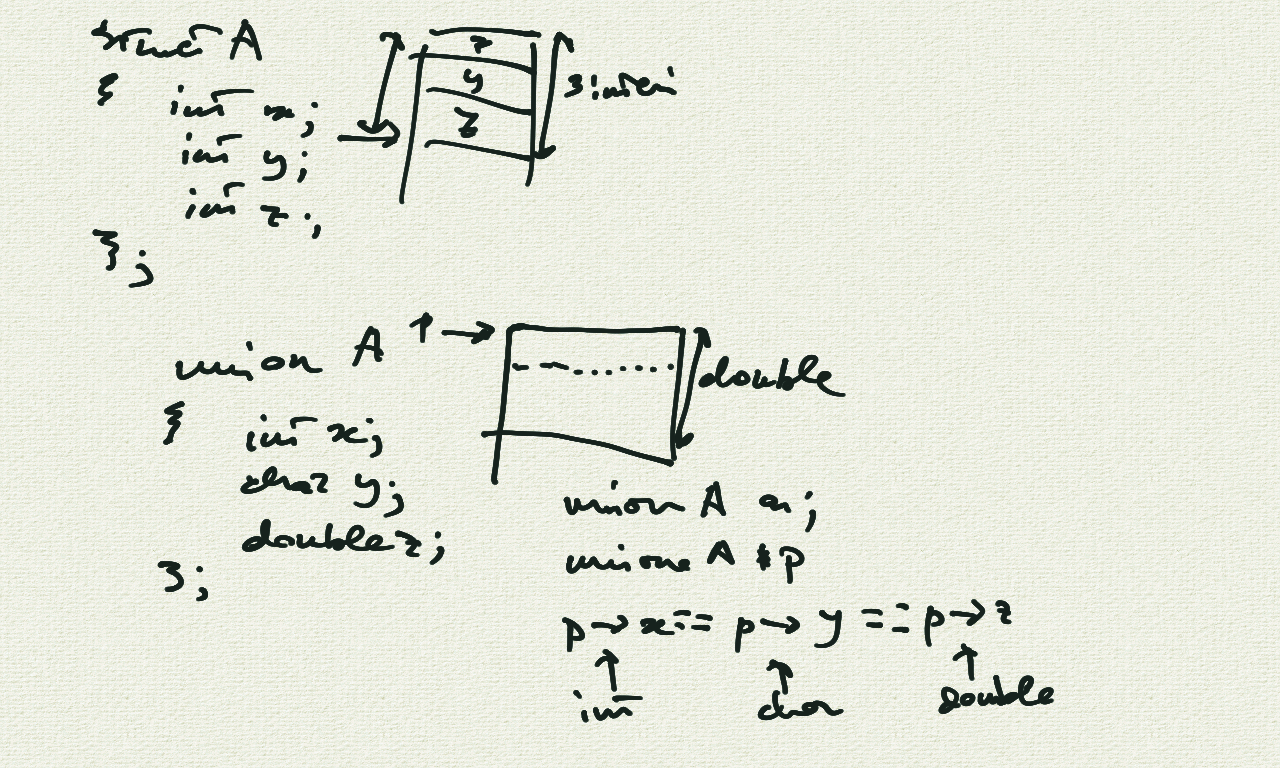 struct A
{
int x;
int y;
int z;
};
x
y
z
3 interi
union A
{
int x;
char y;
double z;
};
p →
double
union A a;
unione A *p
p → x == p → y == p → z
int
char
double